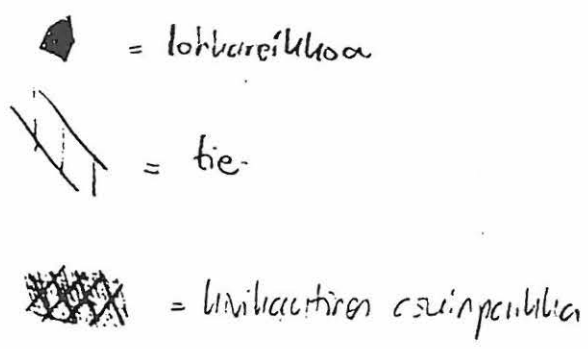 = lohkareikkoa
= tie
= kivikautinen asuinpaikka